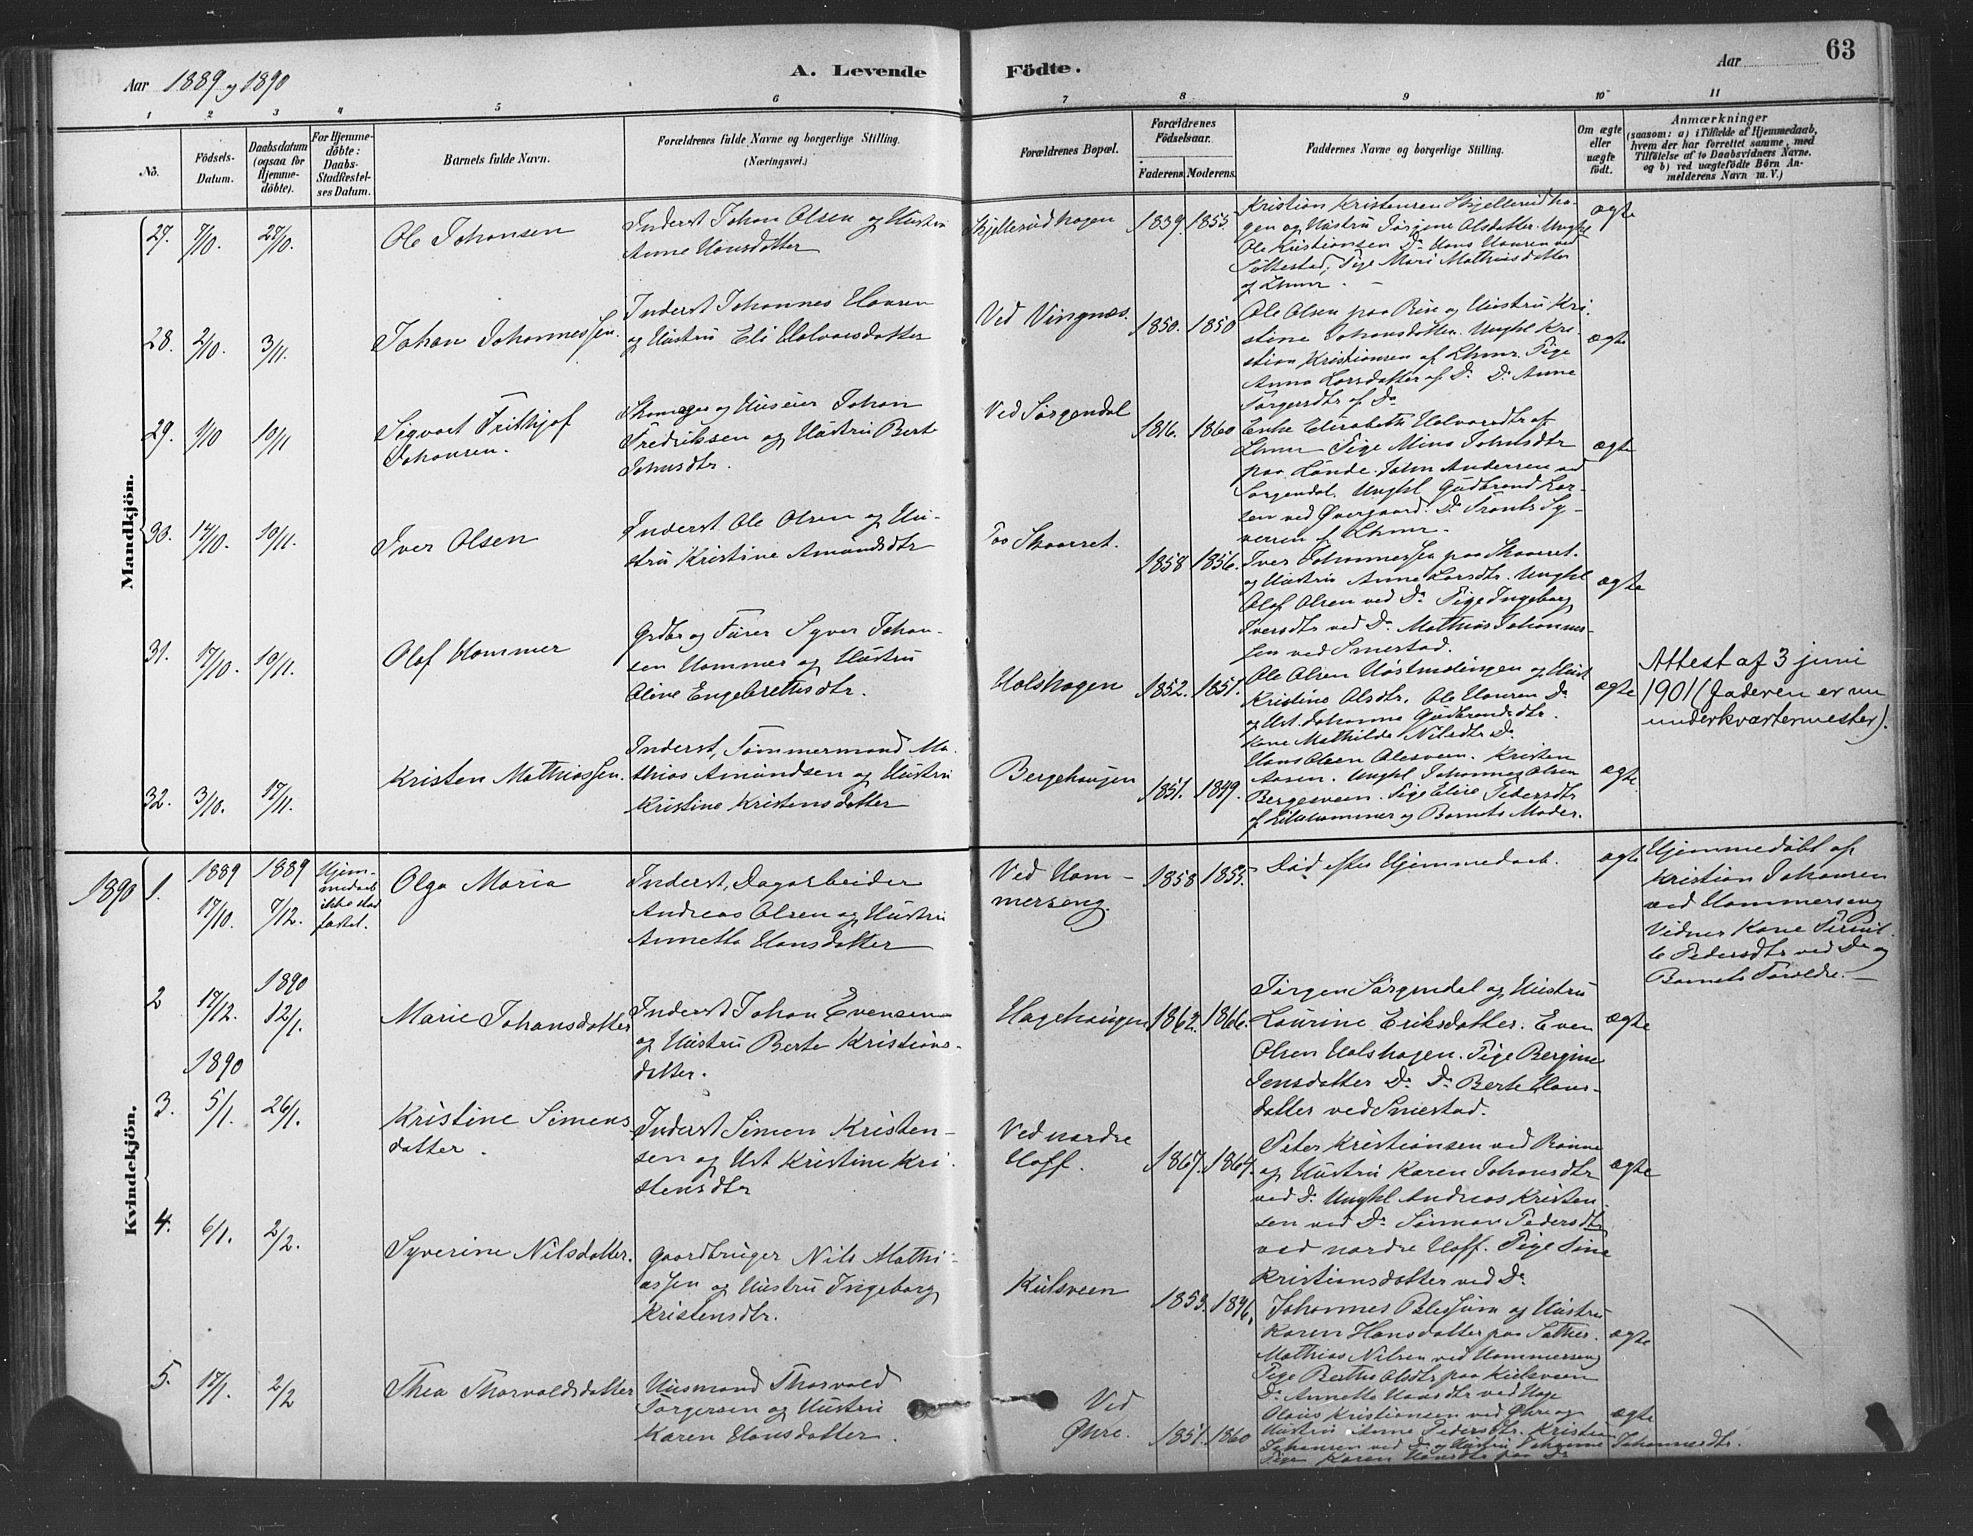 Aar 1889 og 1890
A. Levende Födte.
Aar
63
1 2 3 4 5 6 7 8 9 10 11
No.
Födsels-
Datum.
Daabsdatum
(ogsaa for
Hjemme-
döbte).
For Hjemme-
döbte:
Daabs-
Stadfæstel-
ses Datum.
Barnets fulde Navn.
Forældrenes fulde Navne og borgerlige Stilling.
(Næringsvei.)
Forældrenes Bopæl.
Forældrenes
Födselsaar.
Faderens. Moderens.
Faddernes Navne og borgerlige Stilling.
Om ægte
eller
uægte
födt.
Anmærkninger
(saasom: a) i Tilfælde af Hjemmedaab,
hvem der har forrettet samme, med
Tilföielse af to Daabsvidners Navne.
og b) ved uægtefödte Börn An-
melderens Navn m. V.)
Mandkjön.
27. 7/10. 27/10.
Ole Johansen
Inderst Johan Olsen og Hustru
Anne Hansdatter
Skjellerudhagen
1839 1853.
Kristian Kristensen Skjellerudha-
gen og Hustru Jørgine Olsdatter. Unghl
Ole Kristiansen Do Hans Hansen ved
Søllestad, Pige Mari Mathiasdatter
af Lhmr.
ægte
28. 2/10. 3/11.
Johan Johannessen.
Inderst Johannes Hansen
og Hustru Eli Halvorsdatter
Ved Vingnæs.
1850. 1850
Ole Olsen paa Rin og Hustru Kri-
stine Johansdatter. Unghl Kri-
stian Kristiansen af Lhmr. Pige
Anna Larsdatter af Do Do Anne
Jørgensdtr af Do
ægte
29. 1/10 10/11
Sigvart Frithjof
Johansen.
Skomager og Huseier Johan
Fredriksen og Hustru Berte
Johnsdtr.
Ved Sørgendal
1816. 1860
Enke Elisabeth Halvorsdtr af
Lhmr Pige Mina Johnsdtr
paa Lunde. John Andersen ved
Sørgendal. Unghl Gudbrand Lar-
sen ved Øvergaard. Do Frants Sy-
versen af Lhmr.
ægte
30. 14/10. 10/11.
Iver Olsen
Inderst Ole Olsen og Hu-
stru Kristine Amundsdtr
Paa Skaarset.
1858 1856.
Iver Johannessen paa Skaaret.
og Hustru Anne Larsdtr. Unghl
Olaf Olsen ved Do Pige Ingeborg
Iversdtr ved Do Mathias Johannes-
sen ved Smestad.
ægte
31. 17/10. 10/11.
Olaf Hammer
Grdbr og Furer Syver Johan-
sen Hammer og Hustru
Oline Engebretsdtr.
Holshagen
1852. 1851.
Ole Olsen og Hust
Kristine Olsdtr. Ole Hansen Do
og Ust. Johanna Gudbrandsdtr.
Kone Mathilde Nilsdtr Do
ægte
Attest af 3 juni
1901 (faderen er nu
underkvartermester).
32. 3/10. 17/11.
Kristen Mathiassen.
Inderst, Tømmermand Ma-
thias Amundsen og Hustru
Kristine Kristensdatter
Bergehaugen
1851. 1849.
Hans Olsen Olesveen. Kristen
Aasen. Unghl Johannes Olsen
Bergesveen. Pige Eline Pedersdtr
af Lillehammer og Barnets Moder.
ægte
Kvindekjön.
1890
1. 1889 17/10. 1889 7/12.
Hjem-
medaab
ikke stad
fæstet.
Olga Maria
Inderst, Dagarbeider
Andreas Olsen og Hustru
Annetta Hansdatter
Ved Ham-
merseng.
1858 1853.
Død efter Hjemmedaab.
ægte
Hjemmedøbt af
Kristian Johansen
ved Hammerseng
Vidner Kone Pernil-
le Pedersdtr ved Do og
Barnets Forældre.
2 17/12. 1890 12/1.
Marie Johansdatter
Inderst Johan Evensen
og Hustru Berte Kristians-
datter.
Hagehaugen
1862. 1866.
Jørgen Sørgendal og Hustru
Laurine Eriksdatter. Even
Olsen Holshagen. Pige Bergine
Jensdatter Do Do Berte Hans-
datter ved Smestad.
ægte
1890
3. 5/1. 26/1.
Kristine Simens
datter.
Inderst Simen Kristen-
sen og Ust Kristine Kri-
stensdtr
Ved nordre
Hoff.
1867. 1864.
Peter Kristiansen ved Rønne
og Hustru Karen Johansdtr
ved Do Unghl Andreas Kristen-
sen ved Do Pedersdtr
ved nordre Hoff. Pige Sine
Kristiansdatter ved Do
ægte
4. 6/1. 2/2.
Syverine Nilsdatter.
Gaardbruger Nils Mathi-
assen og Hustru Ingeborg
Kristensdtr.
Kulsveen
1853. 1846.
Johannes og Hustru
Karen Hansdatter paa Sather.
Mathias Nilsen ved Hammerseng
Pige Berthe Olsdtr paa Kulsveen
Do Annette Hansdtr ved Hage
ægte
5. 17/1. 2/2
Thea Thorvaldsdatter
Husmand Thorvald
Jørgensen og Hustru
Karen Hansdatter.
Ved
Øhre.
1851. 1860
Olaus Kristiansen ved Øhre og
Hustru Anne Pedersdtr. Kristian
Johansen ved Do og Hustru Johanne Johannesdtr.
Pige Karen Hansdtr paa Do
ægte